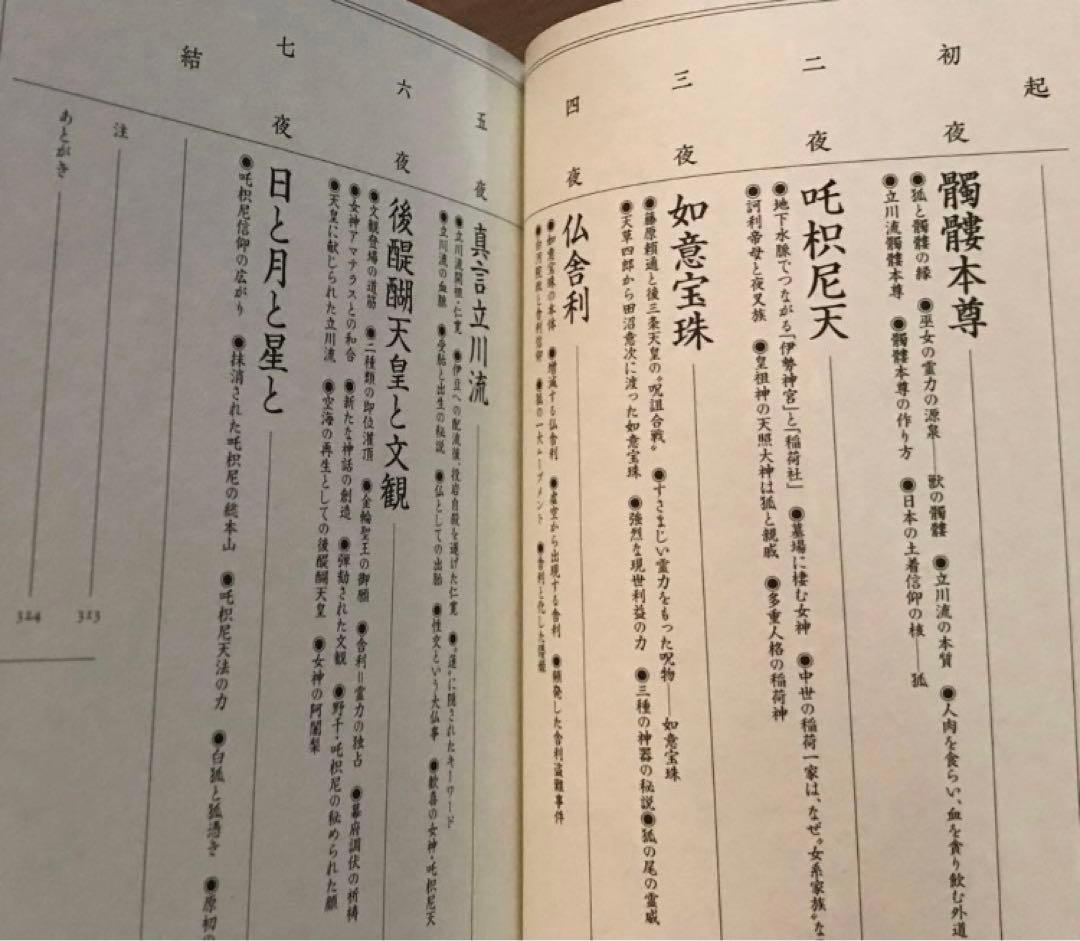 起
初夜
髑髏本尊
●狐と髑髏の縁 ●巫女の霊力の源泉――獣の髑髏 ●立川流の本質 ●人肉を食らい、血を貪り飲む外道
●立川流髑髏本尊 ●髑髏本尊の作り方 ●日本の土着信仰の核――狐
二夜
吒枳尼天
●地下水脈でつながる「伊勢神宮」と「稲荷社」 ●墓場に棲む女神 ●中世の稲荷一家は、なぜ“女系家族”な
●訶利帝母と夜叉族 ●皇祖神の天照大神は狐と親戚 ●多重人格の稲荷神
三夜
如意宝珠
●藤原頼通と後三条天皇の“呪詛合戦” ●すさまじい霊力をもった呪物――如意宝珠
●天草四郎から田沼意次に渡った如意宝珠 ●強烈な現世利益の力 ●三種の神器の秘説 ●狐の尾の霊威
四夜
仏舎利
●如意宝珠の本体 ●増減する仏舎利 ●虚空から出現する舎利 ●頻発した舎利盗難事件
●白河院政と舎利信仰 ●狐の一大ムーブメント ●舎利と化した
五夜
真言立川流
●立川流開祖・仁寛 ●伊豆への配流後、投岩自殺を遂げた仁寛 ●“蓮”に隠されたキーワード
●立川流の血脈 ●受胎と出生の秘説 ●仏としての出胎 ●性交という大仏事 ●歓喜の女神・吒枳尼天
六夜
後醍醐天皇と文観
●文観登場の道筋 ●二種類の即位灌頂 ●金輪聖王の御願 ●舎利＝霊力の独占 ●幕府調伏の祈祷
●女神アマテラスとの和合 ●新たな神話の創造 ●弾劾された文観 ●野干・吒枳尼の秘められた顔
●天皇に献じられた立川流 ●空海の再生としての後醍醐天皇 ●女神の阿闍梨
七夜
日と月と星と
●吒枳尼信仰の広がり ●抹消された吒枳尼の総本山 ●吒枳尼天法の力 ●白狐と狐憑き ●原初の
結
注 323
あとがき 324